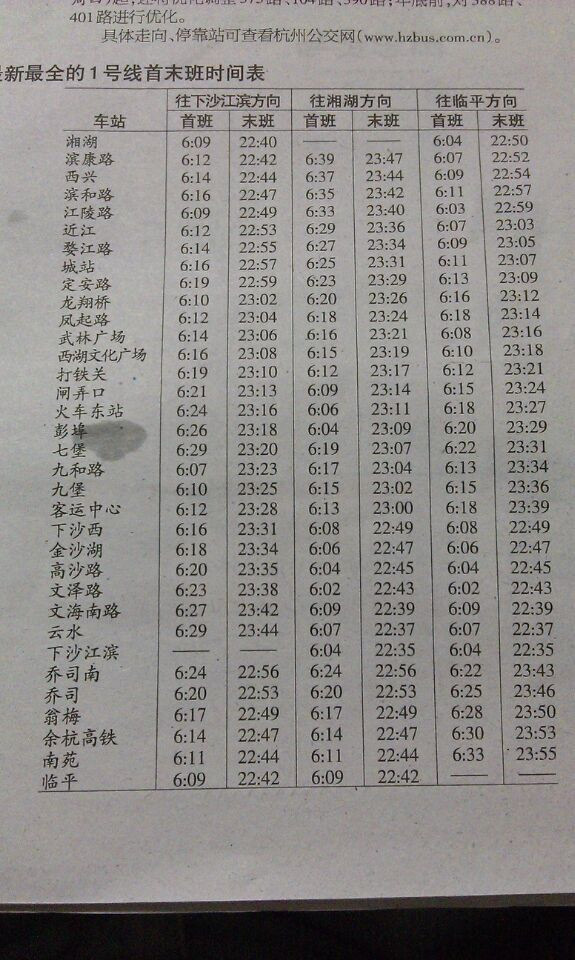 401路进行优化。
具体走向、停靠站可查看杭州公交网(www.hzbus.com.cn)。
新最全的1号线首末班时间表
车站 往下沙江滨方向 往湘湖方向 往临平方向
首班 末班 首班 末班 首班 末班
湘湖 6:09 22:40 —— —— 6:04 22:50
滨康路 6:12 22:42 6:39 23:47 6:07 22:52
西兴 6:14 22:44 6:37 23:44 6:09 22:54
滨和路 6:16 22:47 6:35 23:42 6:11 22:57
江陵路 6:09 22:49 6:33 23:40 6:03 22:59
近江 6:12 22:53 6:29 23:36 6:07 23:03
婺江路 6:14 22:55 6:27 23:34 6:09 23:05
城站 6:16 22:57 6:25 23:31 6:11 23:07
定安路 6:19 22:59 6:23 23:29 6:13 23:09
龙翔桥 6:10 23:02 6:20 23:26 6:16 23:12
凤起路 6:12 23:04 6:18 23:24 6:18 23:14
武林广场 6:14 23:06 6:16 23:21 6:08 23:16
西湖文化广场 6:16 23:08 6:15 23:19 6:10 23:18
打铁关 6:19 23:10 6:12 23:17 6:12 23:21
闸弄口 6:21 23:13 6:09 23:14 6:15 23:24
火车东站 6:24 23:16 6:06 23:11 6:18 23:27
彭埠 6:26 23:18 6:04 23:09 6:20 23:29
七堡 6:29 23:20 6:19 23:07 6:22 23:31
九和路 6:07 23:23 6:17 23:04 6:13 23:34
九堡 6:10 23:25 6:15 23:02 6:15 23:36
客运中心 6:12 23:28 6:13 23:00 6:18 23:39
下沙西 6:16 23:31 6:08 22:49 6:08 22:49
金沙湖 6:18 23:34 6:06 22:47 6:06 22:47
高沙路 6:20 23:35 6:04 22:45 6:04 22:45
文泽路 6:23 23:38 6:02 22:43 6:02 22:43
文海南路 6:27 23:42 6:09 22:39 6:09 22:39
云水 6:29 23:44 6:07 22:37 6:07 22:37
下沙江滨 —— —— 6:04 22:35 6:04 22:35
乔司南 6:24 22:56 6:24 22:56 6:22 23:43
乔司 6:20 22:53 6:20 22:53 6:25 23:46
翁梅 6:17 22:49 6:17 22:49 6:28 23:50
余杭高铁 6:14 22:47 6:14 22:47 6:30 23:53
南苑 6:11 22:44 6:11 22:44 6:33 23:55
临平 6:09 22:42 6:09 22:42 —— ——